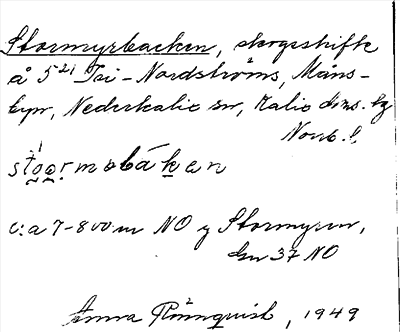 Stormyrbacken, skogsskifte
å 5²¹ Pei-Nordströms, Måns-
byn, Nederkalix sn, Kalix dms. hg
Norrb. l.
stoormobáken
c:a 7-800 m NO Stormyren,
37 NO
Anna Rönnquist, 1949